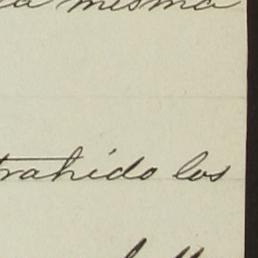 la misma
trahido los